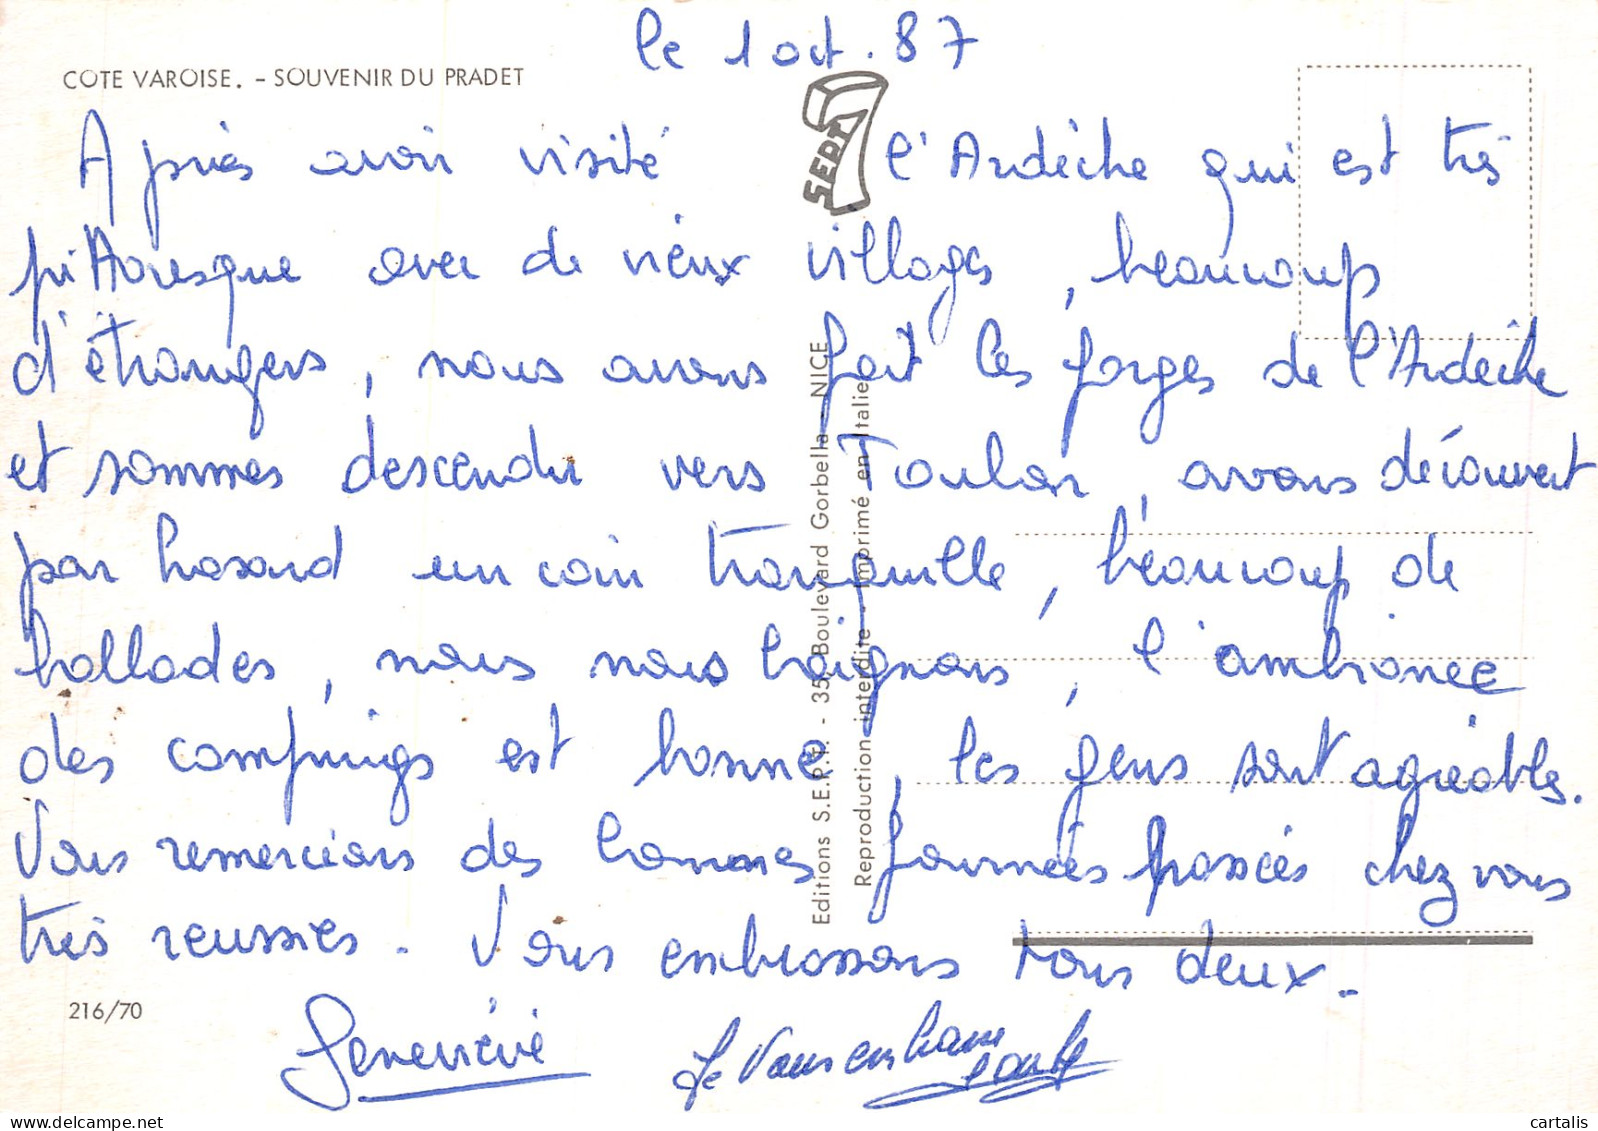 le 1 oct. 87
COTE VAROISE. - SOUVENIR DU PRADET
SEPT
Après avoir visité l'Ardèche qui est très
pittoresque avec de vieux villages, beaucoup
d'étrangers, nous avons fait les gorges de l'Ardèche
et sommes descendu vers Toulon, avons découvert
par hasard un coin tranquille, beaucoup de
ballades, nous nous baignons, l'ambiance
des campings est bonne, les gens sont agréables.
Vous remercions des bonnes journées passées chez vous
très réussies. Vous embrassons tous deux.
Geneviève
Je vous en
216/70
Editions S.E.P.T. - 35, Boulevard Gorbella - NICE
Reproduction interdite - Imprimé en Italie
cartalis